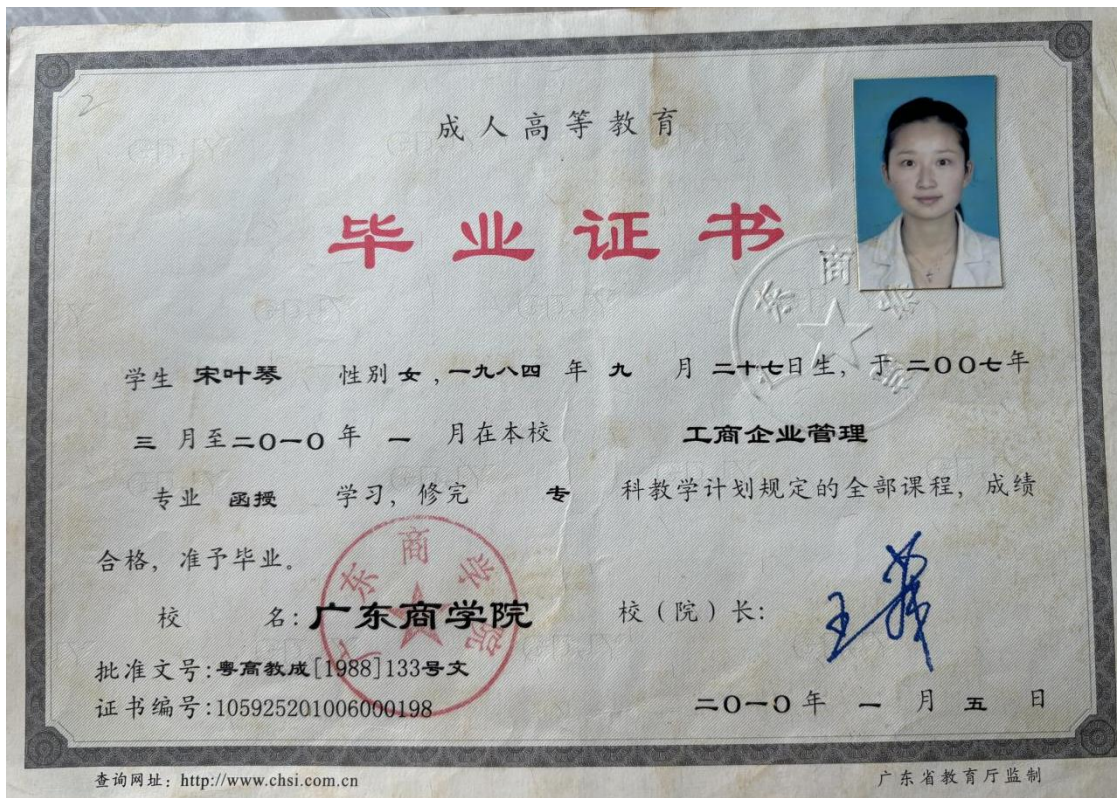 2
成人高等教育
毕业证书
学生 宋叶琴 性别 女，一九八四 年 九 月 二十七日生，于 二〇〇七年
三 月至二〇一〇 年 一 月在本校 工商企业管理
专业 函授 学习，修完 专 科教学计划规定的全部课程，成绩
合格，准予毕业。
广东商学院
校 名：广东商学院 校（院）长：
批准文号：粤高教成[1988]133号文
证书编号：105925201006000198 二〇一〇 年 一 月 五 日
查询网址：http://www.chsi.com.cn 广东省教育厅监制